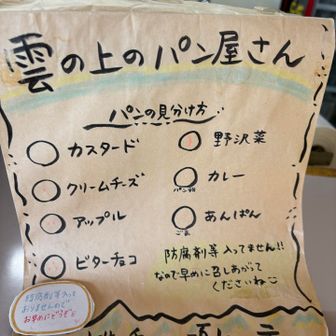 雲の上のパン屋さん
パンの見分け方
カスタード
クリームチーズ
アップル
ビターチョコ
野沢菜
カレー
パン粉
あんぱん
ごま
防腐剤等 入ってません!!
なので早めに召しあがって
くださいね
防腐剤等入って
おりませんので
お早めにどうぞ